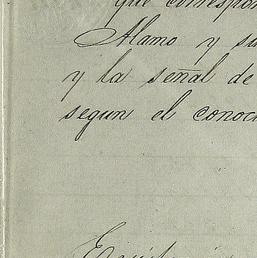 que correspon
Alamo y su
y la señal de
segun el conoci